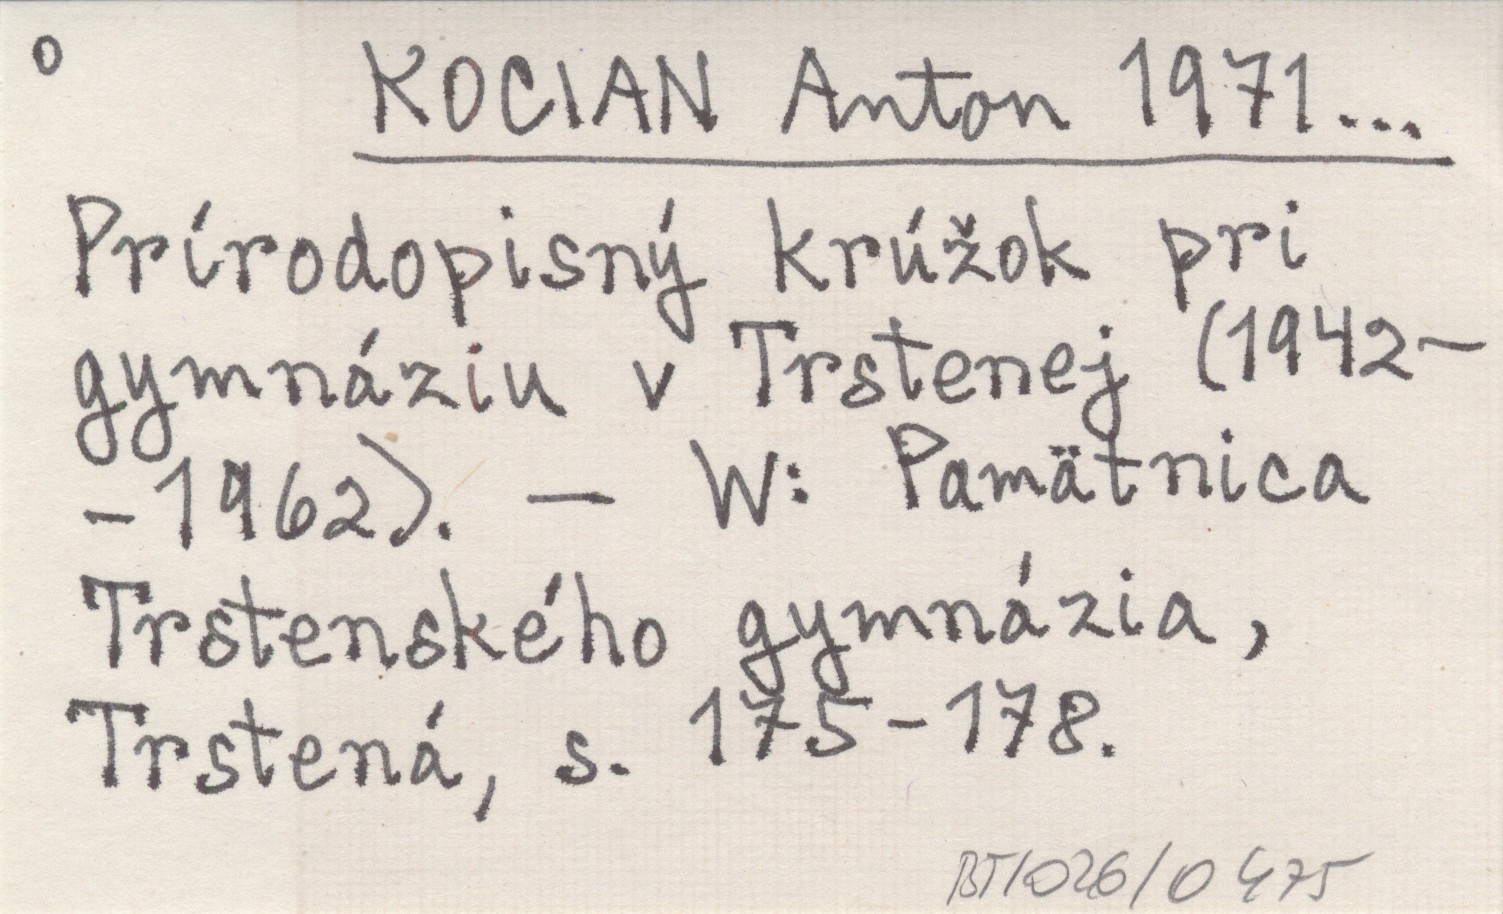 o
KOCIAN Anton 1971...
Prírodopisný krúžok pri
gymnáziu v Trstenej (1942-
-1962). — W: Pamätnica
Trstenského gymnázia,
Trstená, s. 175-178.
BT/026/0475